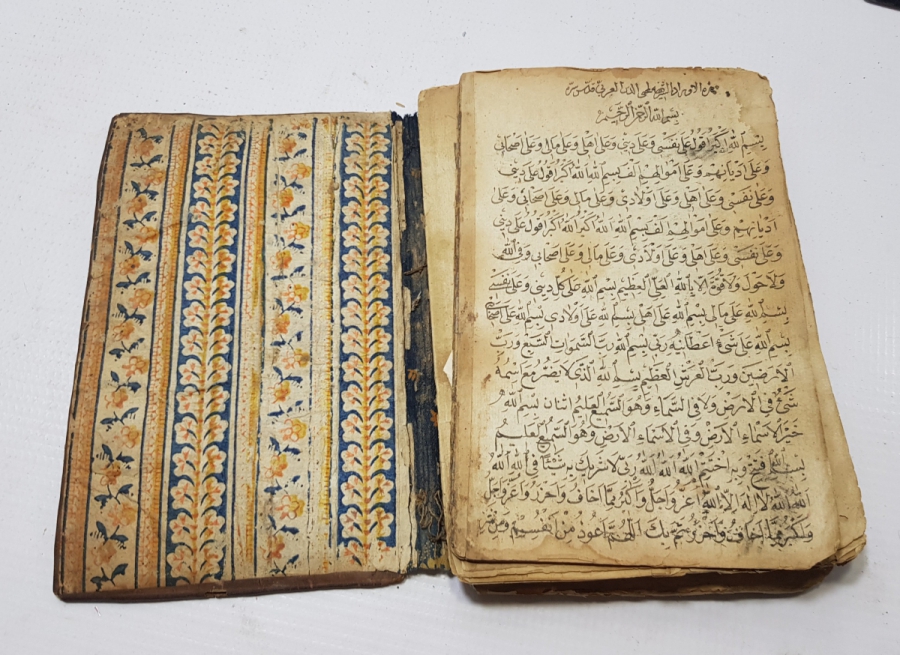 هذه الاوراد الشيخ محى الدين العربى قدس سره
بسم الله الرحمن الرحيم
بِسْمِ اللهِ اَللهُ اَكْبَرُ اَقُولُ عَلَى نَفْسِى وَعَلَى دِينِى وَعَلَى اَهْلِى وَعَلَى مَالِى وَعَلَى اَصْحَابِى
وَعَلَى اَدْيَانِهِمْ وَعَلَى اَمْوَالِهِمْ اَلْفَ بِسْمِ اللهِ اَللهُ اَكْبَرُ اَقُولُ عَلَى دِينِى
وَعَلَى نَفْسِى وَعَلَى اَهْلِى وَعَلَى اَوْلَادِى وَعَلَى مَالِى وَعَلَى اَصْحَابِى وَعَلَى
اَدْيَانِهِمْ وَعَلَى اَمْوَالِهِمْ اَلْفَ بِسْمِ اللهِ اَللهُ اَكْبَرُ اَللهُ اَكْبَرُ اَقُولُ عَلَى دِينِى
وَعَلَى نَفْسِى وَعَلَى اَهْلِى وَعَلَى اَوْلَادِى وَعَلَى مَالِى وَعَلَى اَصْحَابِى وَفِى اللهِ
وَلَا حَوْلَ وَلَا قُوَّةَ اِلَّا بِاللهِ الْعَلِىِّ الْعَظِيمِ بِسْمِ اللهِ عَلَى كُلِّ دِينِى وَعَلَى نَفْسِى
بِسْمِ اللهِ عَلَى مَالِى بِسْمِ اللهِ عَلَى اَهْلِى بِسْمِ اللهِ عَلَى اَوْلَادِى بِسْمِ اللهِ عَلَى اَصْحَابِى
بِسْمِ اللهِ عَلَى شَىْءٍ اَعْطَانِيهِ رَبِّى بِسْمِ اللهِ رَبِّ السَّمَوَاتِ السَّبْعِ وَرَبِّ
الْاَرَضِينَ وَرَبِّ الْعَرْشِ الْعَظِيمِ بِسْمِ اللهِ الَّذِى لَا يَضُرُّ مَعَ اسْمِهِ
شَىْءٌ فِى الْاَرْضِ وَلَا فِى السَّمَاءِ وَهُوَ السَّمِيعُ الْعَلِيمُ اثنان بِسْمِ اللهِ
خَيْرِ الْاَسْمَاءِ فِى الْاَرْضِ وَفِى السَّمَاءِ وَهُوَ السَّمِيعُ الْعَلِيمُ
بِسْمِ اللهِ اَفْتَتِحُ وَبِهِ اَخْتَتِمُ اَللهُ اَللهُ اَللهُ رَبِّى لَا اُشْرِكُ بِهِ شَيْئًا اَللهُ اَللهُ
اَللهُ لَا اِلَهَ اِلَّا اللهُ اَعَزُّ وَاَجَلُّ وَاَكْبَرُ مِمَّا اَخَافُ وَاَحْذَرُ وَاَعَزُّ وَاَجَلُّ
وَاَكْبَرُ مِمَّا اَخَافُ وَاَحْذَرُ بِكَ اَللّٰهُمَّ اَعُوذُ مِنْ نَفْسِى وَمِنْ